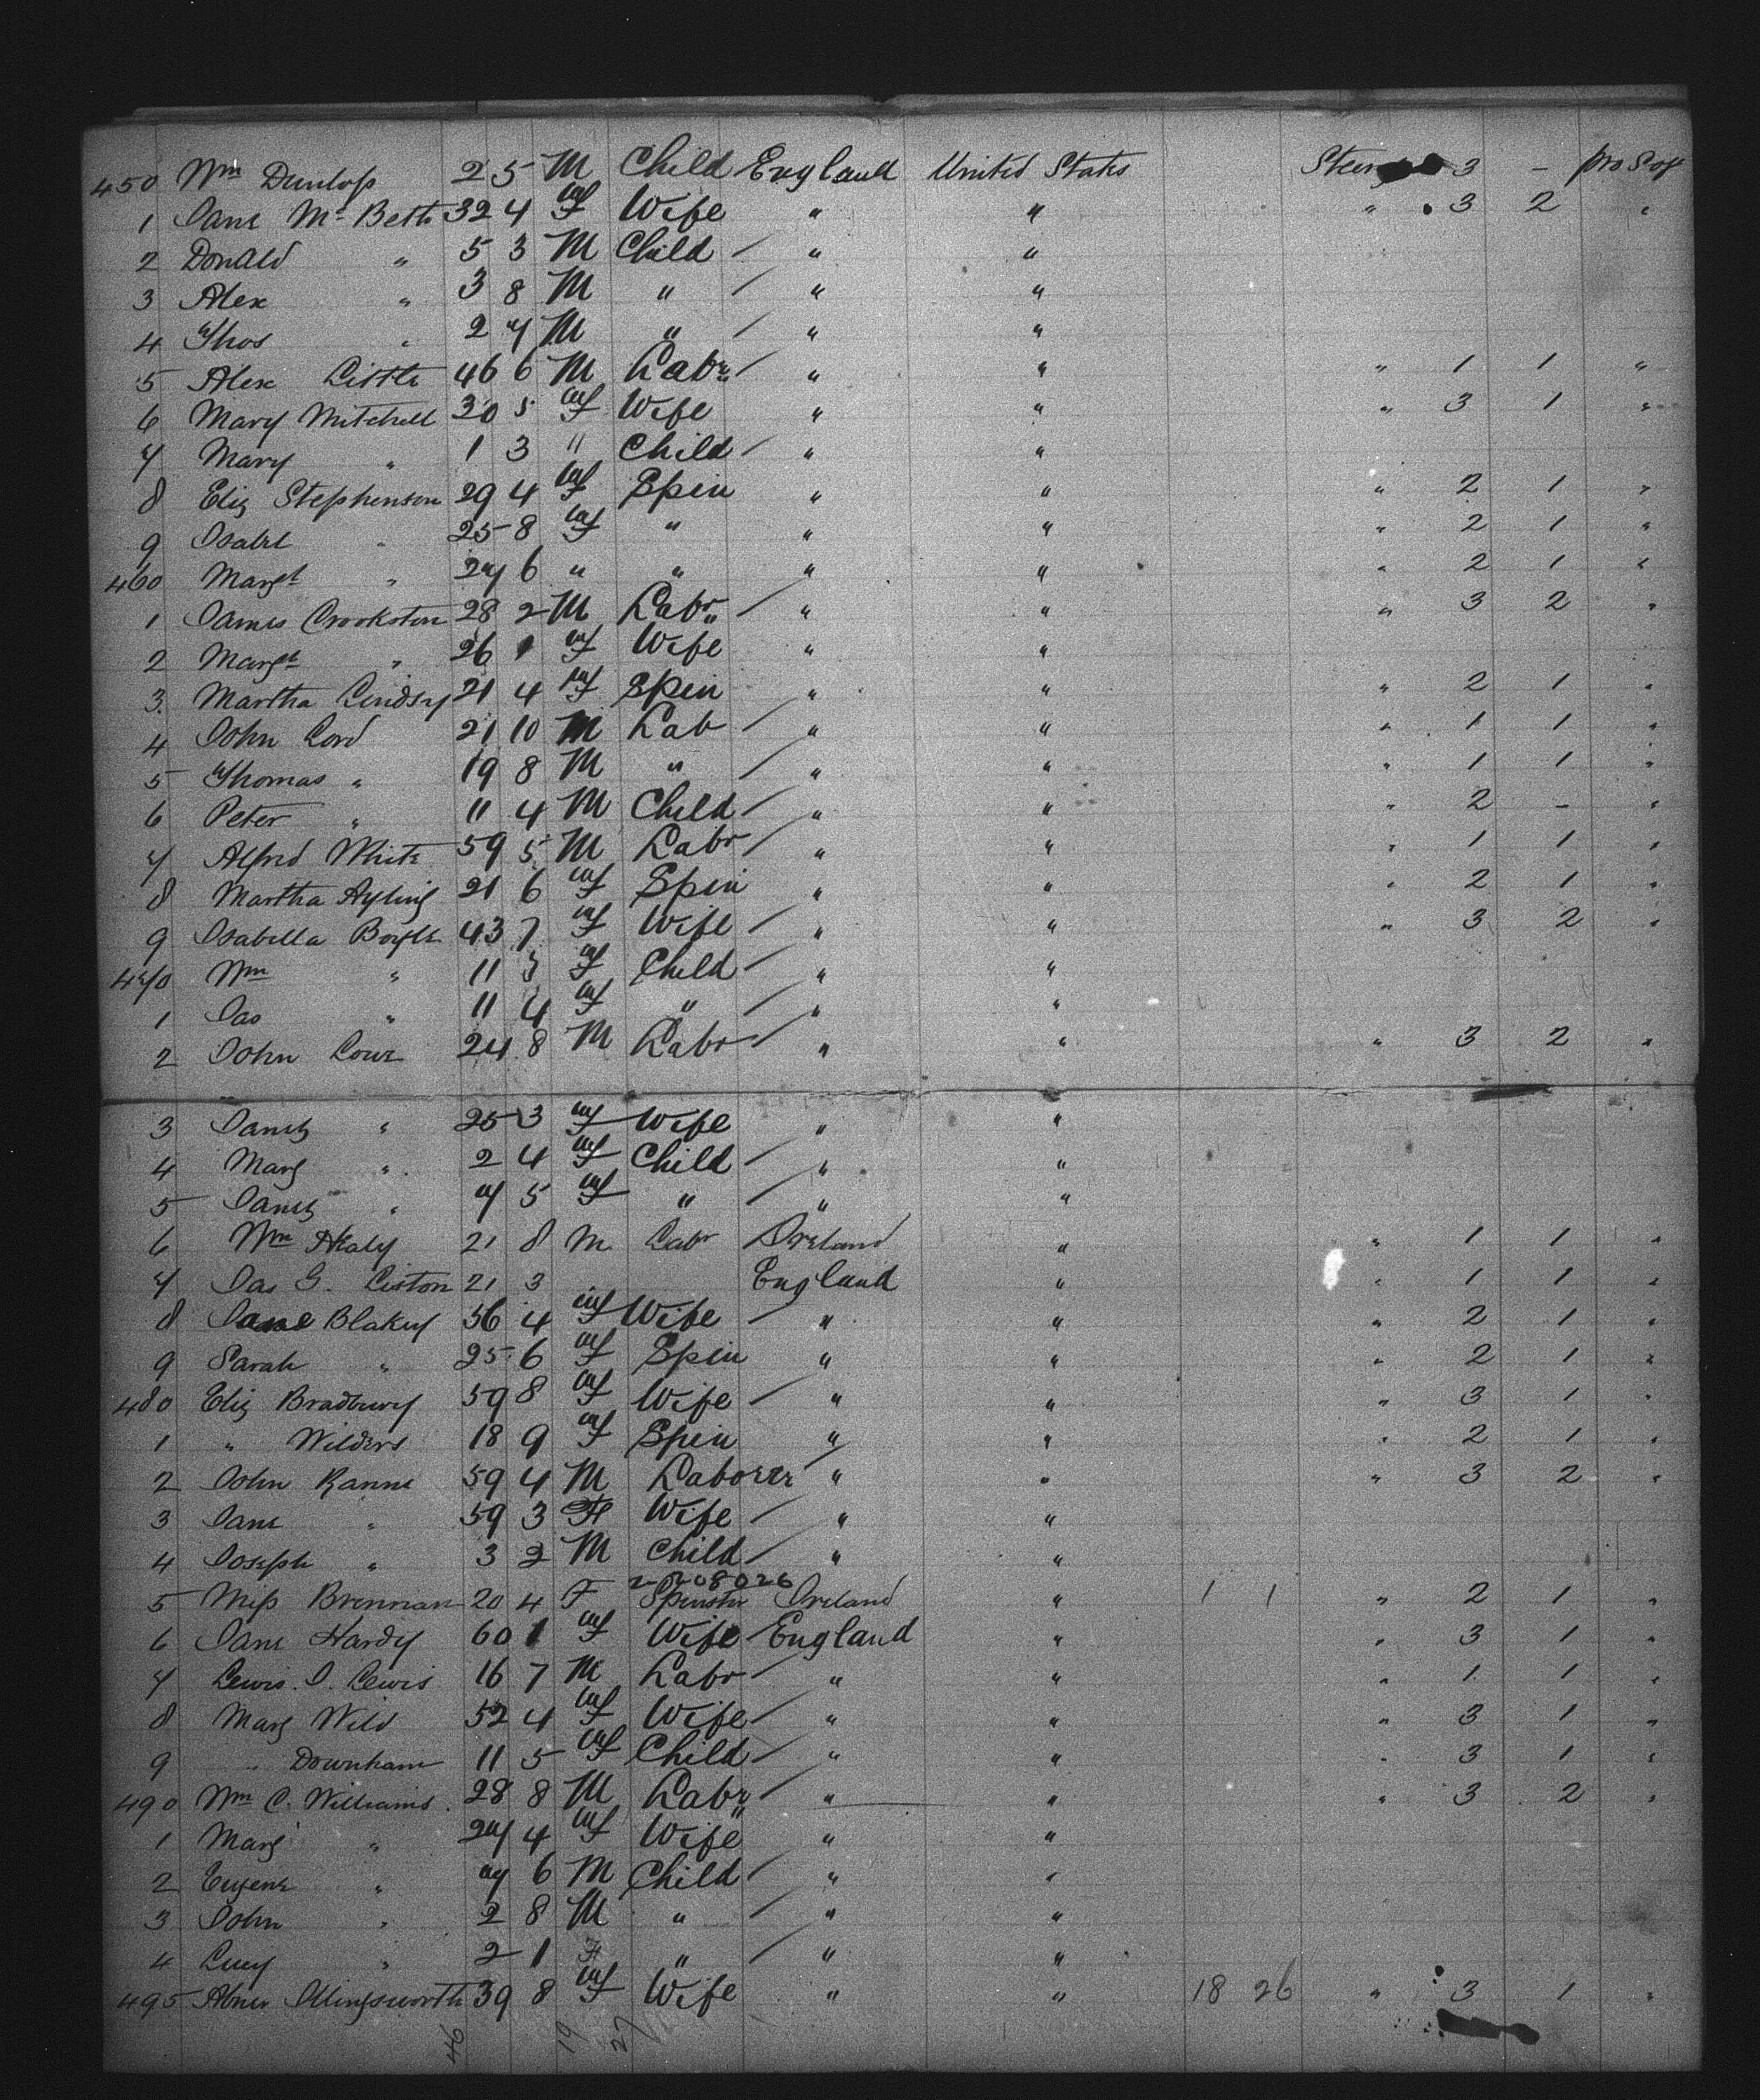 450 Wm Dunlop 2 5 M Child England United States Steer 3 - pro Scot
1 Jane Mc Beth 32 4 F Wife " " " 3 2 "
2 Donald " 5 3 M Child " "
3 Alex " 3 8 M " " "
4 Thos " 2 7 M " " "
5 Alex Little 46 6 M Labr " " " 1 1 "
6 Mary Mitchell 30 5 F Wife " " " 3 1 "
7 Mary " 1 3 " Child " "
8 Eliz Stephenson 29 4 F Spin " " " 2 1 "
9 Isabel " 25 8 F " " " " 2 1 "
460 Margt " 27 6 " " " " " 2 1 "
1 James Crookston 28 2 M Labr " " " 3 2 "
2 Margt " 26 1 F Wife " "
3 Martha Lindsy 21 4 F Spin " " " 2 1 "
4 John Lord 21 10 M Lab " " " 1 1 "
5 Thomas " 19 8 M " " " " 1 1 "
6 Peter " 11 4 M Child " " " 2 - "
7 Alfred White 59 5 M Labr " " " 1 1 "
8 Martha Ayling 21 6 F Spin " " " 2 1 "
9 Isabella Boyle 43 7 F Wife " " " 3 2 "
470 Wm " 11 3 F Child " "
1 Jas " 11 4 F " " "
2 John Lowe 24 8 M Labr " " " 3 2 "
3 Janet " 25 3 F Wife " "
4 Marg " 2 4 F Child " "
5 Janet " 7 5 F " " "
6 Wm Healy 21 8 M Labr Ireland " " 1 1 "
7 Jas G. Liston 21 3 England " " 1 1 "
8 Jane Blakey 56 4 F Wife " " " 2 1 "
9 Sarah " 25 6 F Spin " " " 2 1 "
480 Eliz Bradbury 59 8 F Wife " " " 3 1 "
1 " Wilders 18 9 F Spin " " " 2 1 "
2 John Ranne 59 4 M Laborer " " " 3 2 "
3 Jane " 59 3 F Wife " "
4 Joseph " 3 2 M Child " "
5 Miss Brennan 20 4 F Spinster Ireland " 1 1 " 2 1 "
6 Jane Hardy 60 1 F Wife England " " 3 1 "
7 Lewis. J. Lewis 16 7 M Labr " " " 1 1 "
8 Marg Wild 52 4 F Wife " " " 3 1 "
9 " Downham 11 5 F Child " " " 3 1 "
490 Wm C. Williams 28 8 M Labr " " " 3 2 "
1 Marg " 27 4 F Wife " "
2 Eugene " 7 6 M Child " "
3 John " 2 8 M " " "
4 Lucy " 2 1 F " " "
495 Abner Illingsworth 39 8 F Wife " " 18 26 " 3 1 "
46 19 27